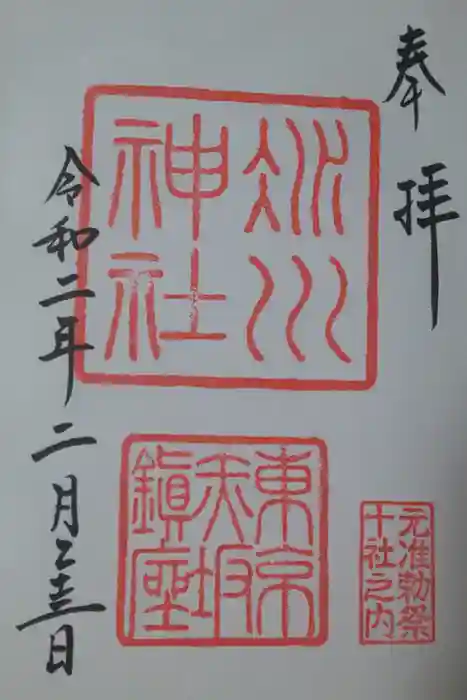 奉拝
氷川
神社
東京
赤坂
鎮座
元准勅祭
十社之内
令和二年二月二十三日